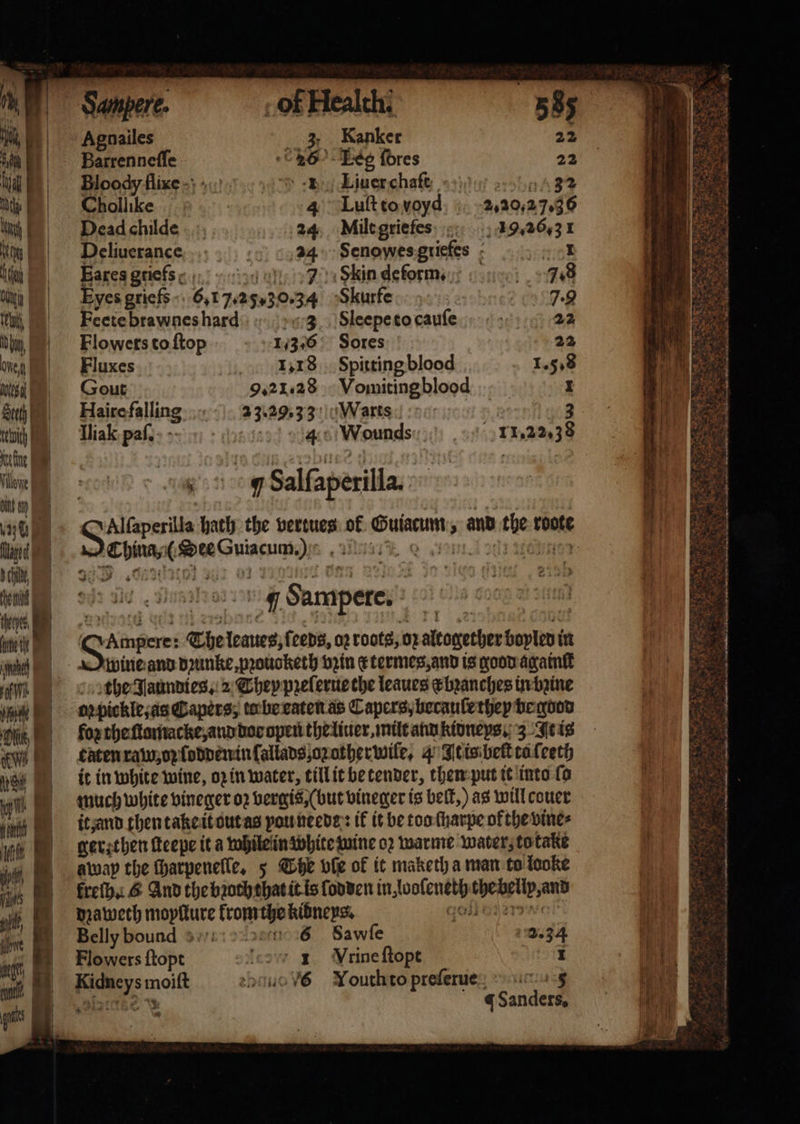 Sampere. of Health. 585
Agnailes 3, Kanker 22
Barrennesse 26 Leg sores 22
Bloody flixe Liuer chaft 32
Chollike 4 Lust to voyd. 2,20,27,36
Dead childe 24, Milt griefes 19,26,31
Deliuerance 24 Senowes griefes 1
Eares griefs 7 Skin deform. 7,8
Eyes griefs 6,17,25,30.34 Skurfe 7.9
Feete brawnes hard 3 Sleepe to cause 22
Flowers to stop 1,3,6 Sores 22
Fluxes 1,18 Spitting blood 1.5,8
Gout 9,21,28 Vomiting blood 1
Haire falling 23.29.33 Warts 3
Iliak pas. 4 Wounds 11,22,38
¶ Salsaperilla.
SAlsaperilla hath the vertues of Guiacum, and the roote
China, (See Guiacum.)
¶ Sampere.
SAmpere: The leaues, seeds, or roots, or altogether boyled in
wine and drunke, prouoketh vrin & termes, and is good against
the Jaundies, 2 They preserue the leaues & branches in brine
or pickle, as Capers, to be eaten as Capers, because they be good
for the stomacke, and doe open the liuer, milt and kidneys, 3 It is
eaten raw, or sodden in sallads, or otherwise, 4 It is best to seeth
it in white wine, or in water, till it be tender, then put it into so
much white vineger or vergis, (but vineger is best,) as will couer
it, and then take it out as you neede: if it be too sharpe of the vine-
ger, then steepe it a while in white wine or warme water, to take
away the sharpenesse, 5 The vse of it maketh a man to looke
fresh, 6 And the broth that it is sodden in, looseneth the belly, and
draweth moysture from the kidneys.
Belly bound 6 Sawse 2.34
Flowers stopt 1 Vrine stopt 1
Kidneys moist 6 Youth to preserue 5
¶ Sanders,